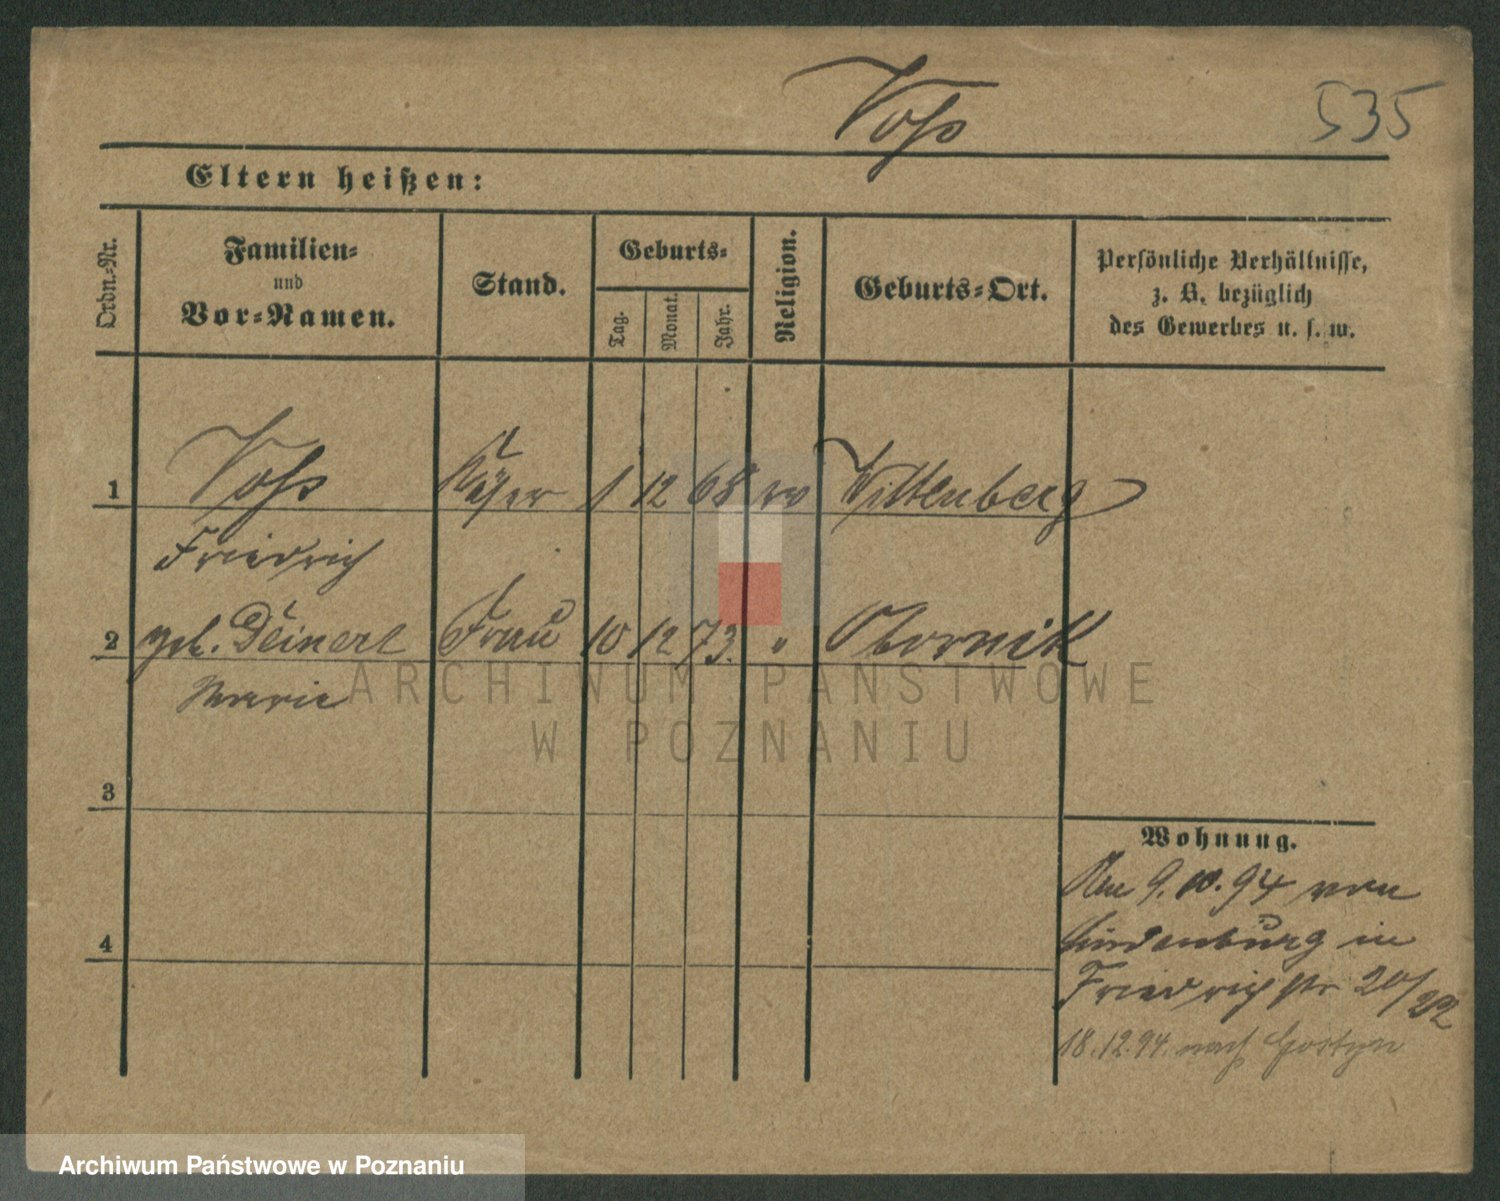 Voß
535
Eltern heißen:
Ordn.-Nr.
Familien-
und
Vor-Namen.
Stand.
Geburts-
Tag.
Monat.
Jahr.
Religion.
Geburts-Ort.
Persönliche Verhältnisse,
z. B. bezüglich
des Gewerbes u. s. w.
1 Voß 1 12 68 ev Wittenberg
Friedrich
2 geb. Deinert Frau 10 12 73. " Obornik
Marie
3
4
Wohnung.
9.10.94 von
in
Friedrichstr 20/22
18.12.94. nach Gostyn
ARCHIWUM PAŃSTWOWE
W POZNANIU
Archiwum Państwowe w Poznaniu